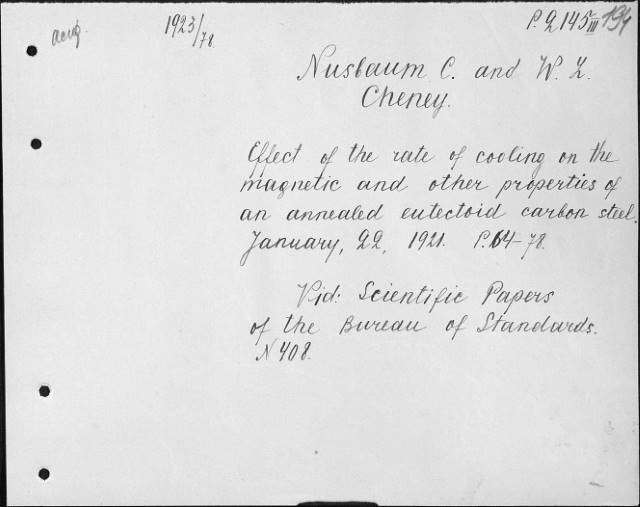 acuq.
1923/78.
P. 2145III 134
Nusbaum C. and W. L.
Cheney.
Effect of the rate of cooling on the
magnetic and other properties of
an annealed eutectoid carbon steel.
January, 22, 1921. P. 64-78.
Vid: Scientific Papers
of the Bureau of Standards.
N 408.